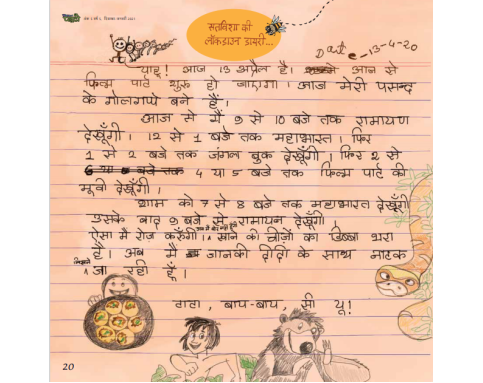 सतविशा की
लॉकडाउन डायरी...
Date -13-4-20
याहू! आज 13 अप्रैल है। आज से
फिल्म पार्ट शुरू हो जाएगा। आज मेरी पसन्द
के गोलगप्पे बने हैं।
आज से मैं 9 से 10 बजे तक रामायण
देखूँगी। 12 से 1 बजे तक महाभारत। फिर
1 से 2 बजे तक जंगल बुक देखूँगी। फिर 2 से
4 या 5 बजे तक फिल्म पार्ट की
मूवी देखूँगी।
शाम को 7 से 8 बजे तक महाभारत देखूँगी
उसके बाद 9 बजे से रामायन देखूँगी।
ऐसा मैं रोज करूँगी। खाने की चीज़ों का डिब्बा भरा
है। अब मैं जानकी दीदी के साथ नाटक
जा रही हूँ।
टाटा, बाय-बाय, सी यू!
20